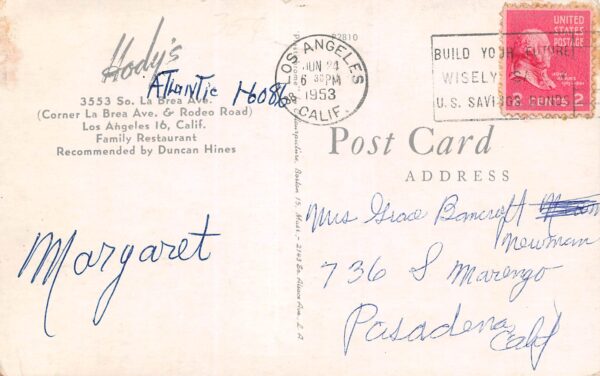 Hody's
Atlantic 16086
3553 So. La Brea Ave.
(Corner La Brea Ave. & Rodeo Road)
Los Angeles 16, Calif.
Family Restaurant
Recommended by Duncan Hines
Margaret
P2810
LOS ANGELES
JUN 24
6 30 PM
1953
CALIF.
BUILD YOUR FUTURE
WISELY
U.S. SAVINGS
UNITED
STATES
POSTAGE
2 CENTS 2
Post Card
ADDRESS
Mrs Grace Bancroft
Newman
736 S Marengo
Pasadena
Calif